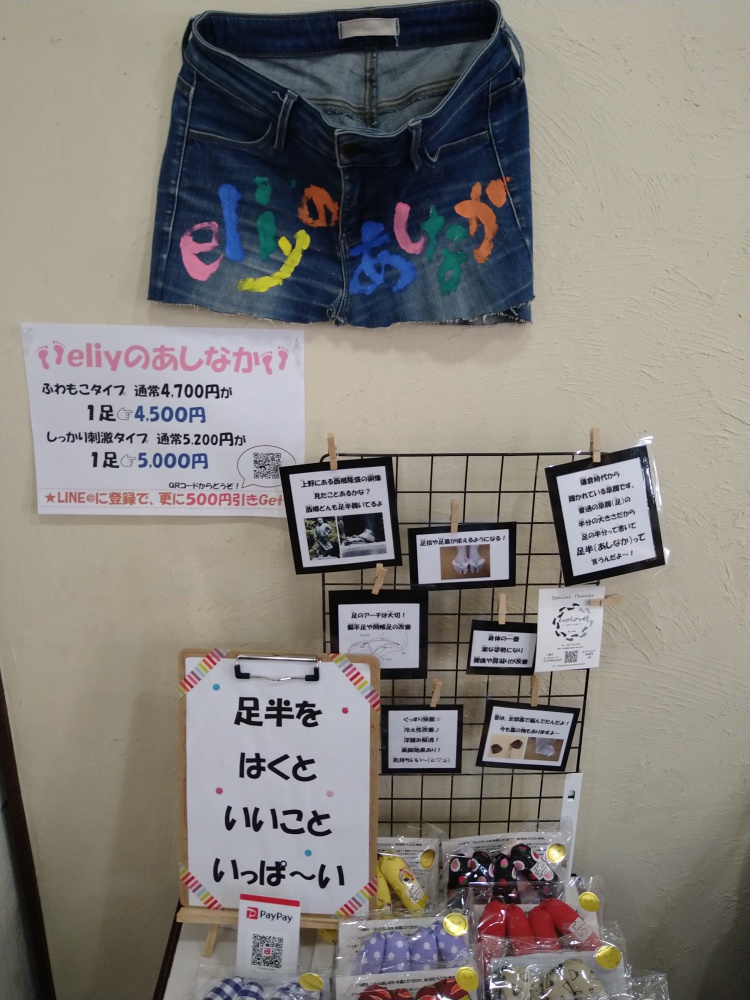 eliyのあしなか
eliyのあしなか
ふわもこタイプ 通常4,700円が
1足☞4,500円
しっかり刺激タイプ 通常5,200円が
1足☞5,000円
QRコードからどうぞ！
★LINE@に登録で、更に500円引きGet
上野にある西郷隆盛の銅像
見たことあるかな？
西郷どんも足半履いてるよ
鎌倉時代から
履かれている草履です。
普通の草履(足)の
半分の大きさだから
足の半分って書いて
足半(あしなか)って
言うんだよ〜！
足指や足裏が使えるようになる！
足のアーチは大切！
偏平足や開帳足の改善
身体の一番
楽な姿勢になり
Special Thanks
evolove
ぐっすり快眠☆
冷え性改善♪
浮腫み解消！
昔は、全部藁で編んでたんだよ！
今も藁の物もありますよ〜
足半を
はくと
いいこと
いっぱ〜い
PayPay